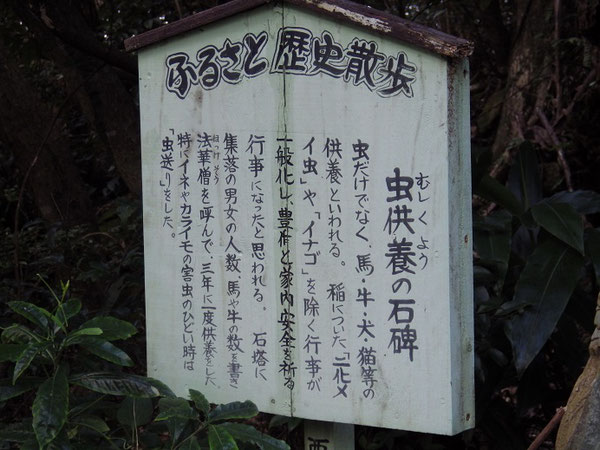 ふるさと歴史散歩
虫供養の石碑
むしくよう
虫だけでなく、馬・牛・犬・猫等の
供養といわれる。 稲についた「ニ化メ
イ虫」や「イナゴ」を除く行事が
一般化し、豊作と家内安全を祈る
行事になったと思われる。 石塔に
集落の男女の人数、馬や牛の数を書き
法華僧を呼んで、三年に一度供養をした、
ほっけそう
特にイネやカライモの害虫のひどい時は
「虫送り」をした。
西